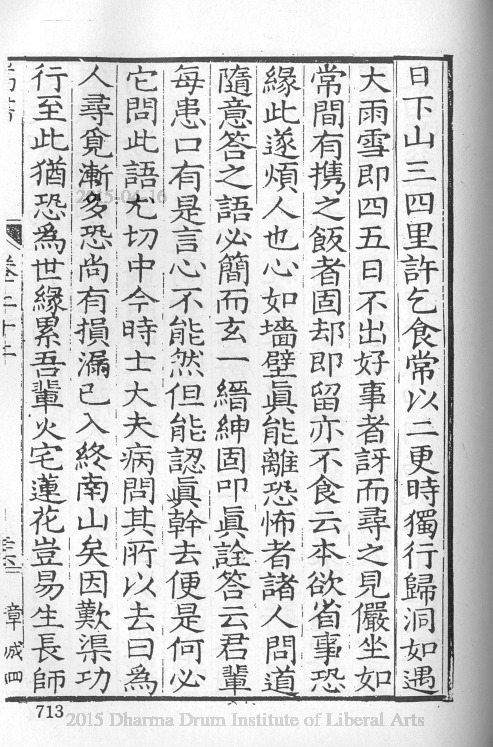 日下山三四里許乞食常以二更時獨行歸洞如遇
大雨雪即四五日不出好事者訝而尋之見儼坐如
常間有攜之飯者固却即留亦不食云本欲省事恐
緣此遂煩人也心如墻壁眞能離恐怖者諸人問道
隨意答之語必簡而玄一縉紳固叩眞詮答云君輩
每患口有是言心不能然但能認眞幹去便是何必
它問此語尤切中今時士大夫病問其所以去曰爲
人尋覓漸多恐尚有損漏已入終南山矣因歎渠功
行至此猶恐爲世緣累吾輩火宅蓮花豈易生長師
卷二十二
章成四
713
2015 Dharma Drum Institute of Liberal Arts